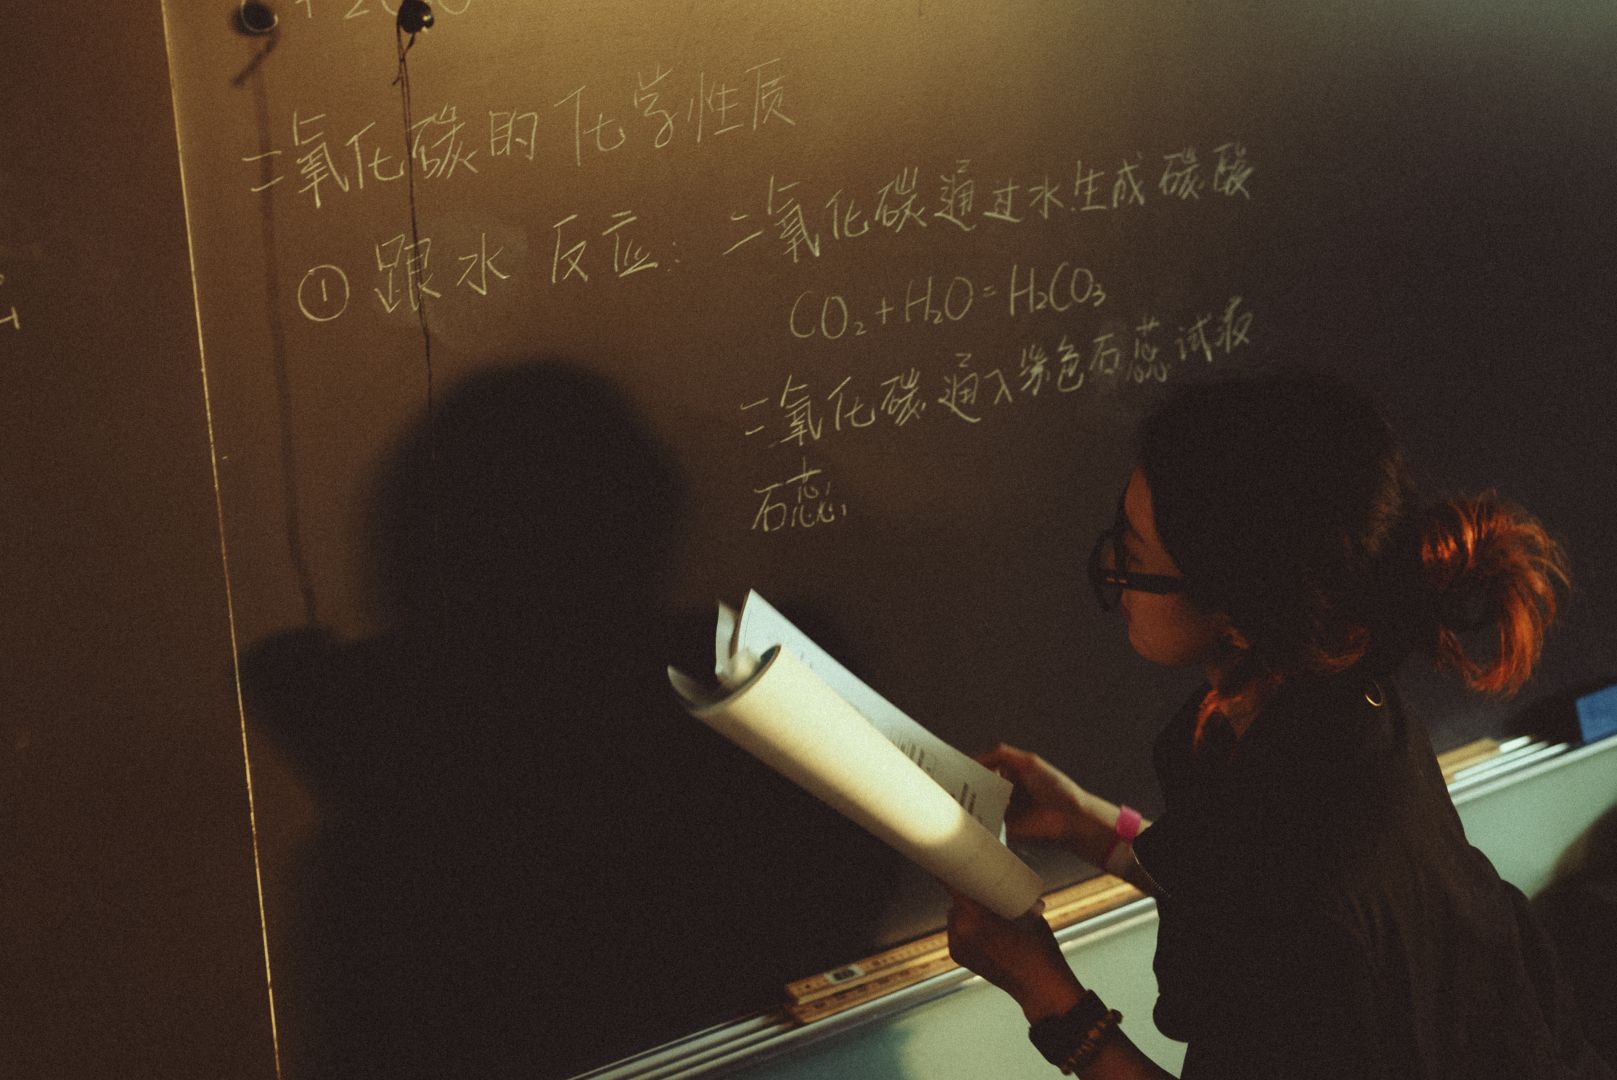 二氧化碳的化学性质
① 跟水反应: 二氧化碳通过水生成碳酸
CO₂+H₂O=H₂CO₃
二氧化碳通入紫色石蕊试液
石蕊